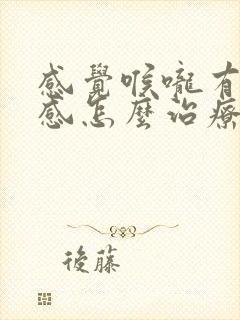 感覺喉嚨有
感怎麼治療
後藤